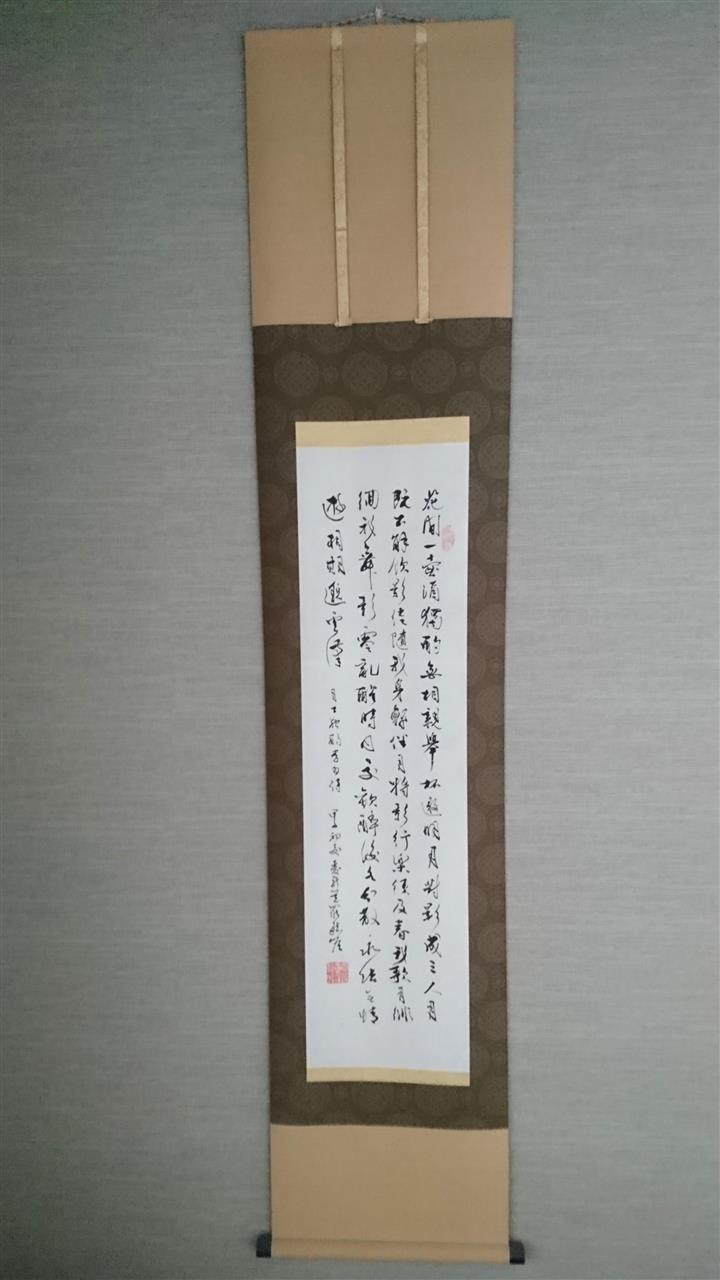 花間一壺酒獨酌無相親舉杯邀明月對影成三人月
既不解飲影徒隨我身暫伴月將影行樂須及春我歌月徘
徊我舞影零亂醒時同交歡醉後各分散永結無情
遊相期邈雲漢 月下独酌李白詩